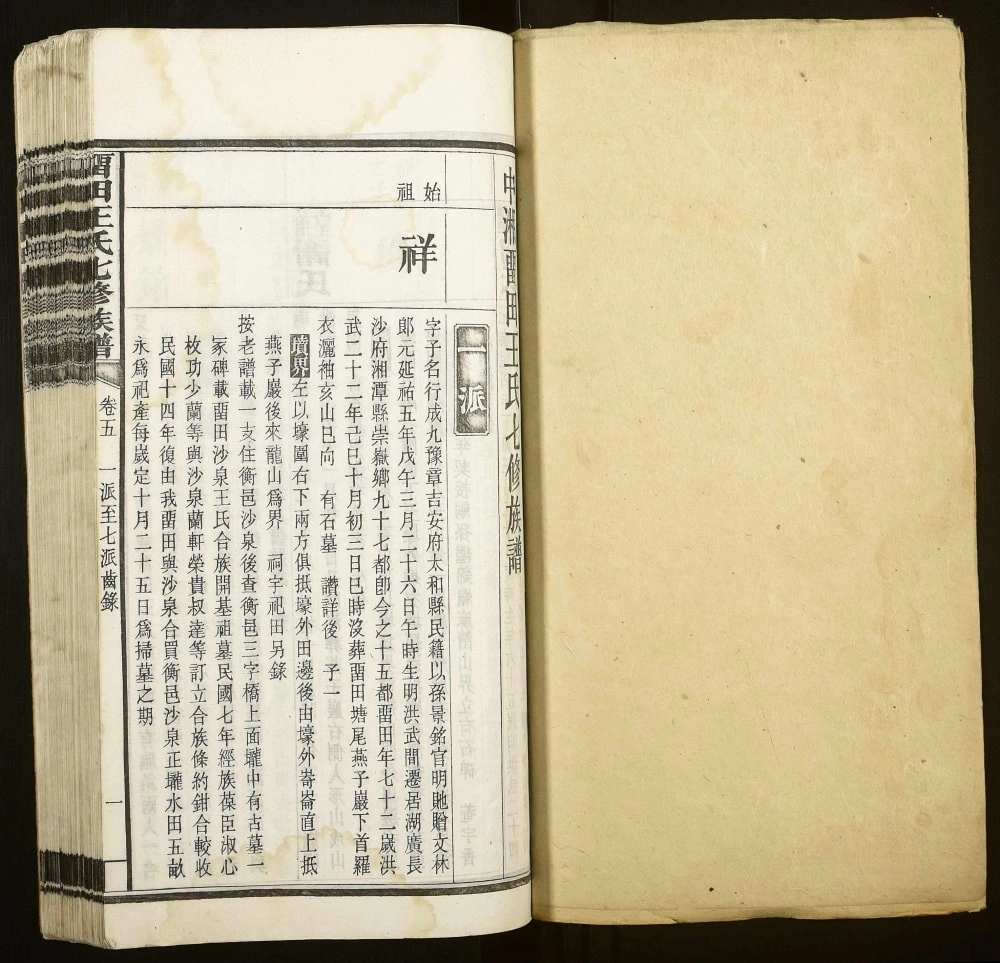 中湘畱田王氏七修族譜
一派
始祖
祥
字子名行成九豫章吉安府太和縣民籍以孫景銘官明貤贈文林
郎元延祐五年戊午三月二十六日午時生明洪武間遷居湖廣長
沙府湘潭縣崇嶽鄉九十七都卽今之十五都畱田年七十二歲洪
武二十二年己巳十月初三日巳時沒葬畱田塘尾燕子巖下首羅
衣灑袖亥山巳向 有石墓 讚詳後 子一
墳界左以壕圍右下兩方俱抵壕外田邊後由壕外嵜崙直上抵
燕子巖後來龍山爲界 祠宇祀田另錄
按老譜載一支住衡邑沙泉後查衡邑三字橋上面壠中有古墓一
冢碑載畱田沙泉王氏合族開基祖墓民國七年經族葆臣淑心
枚功少蘭等與沙泉蘭軒榮貴叔達等訂立合族條約鉗合較收
民國十四年復由我畱田與沙泉合買衡邑沙泉正壠水田五畝
永爲祀產每歲定十月二十五日爲掃墓之期
畱田王氏七修族譜
卷五 一派至七派齒錄
一